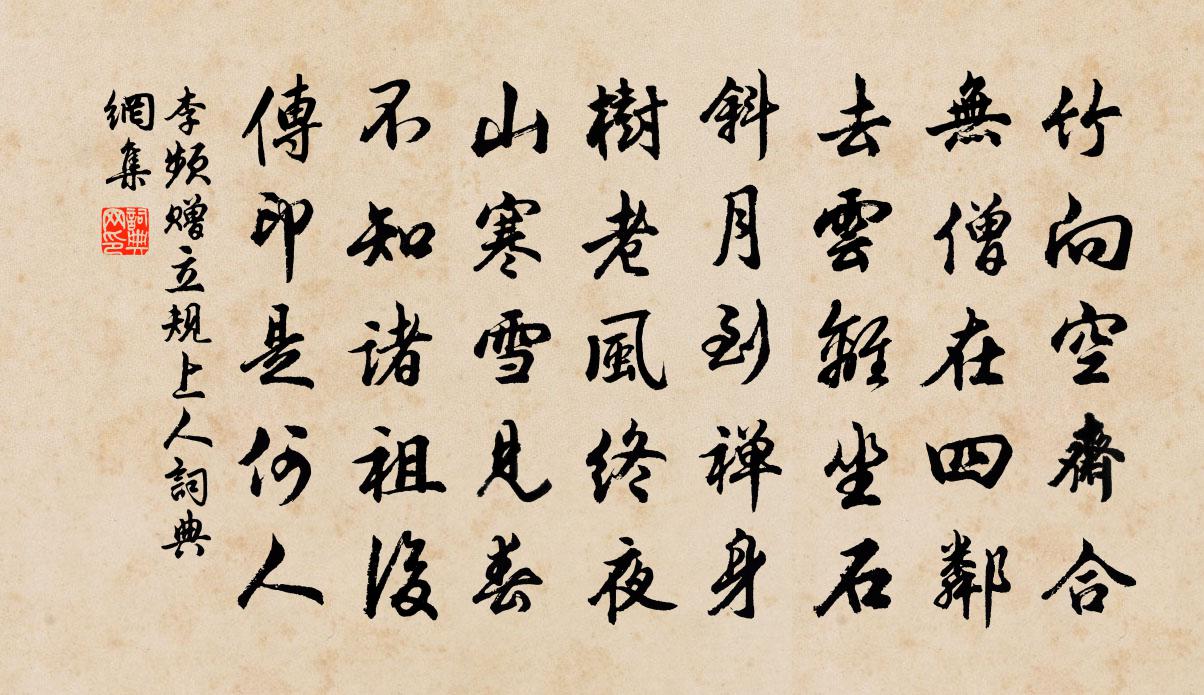 竹向空齋合
無僧在四鄰
去雲離坐石
斜月到禅身
樹老風終夜
山寒雪見春
不知诸祖後
傳印是何人
李频赠立规上人詞典
網集
詞典網印